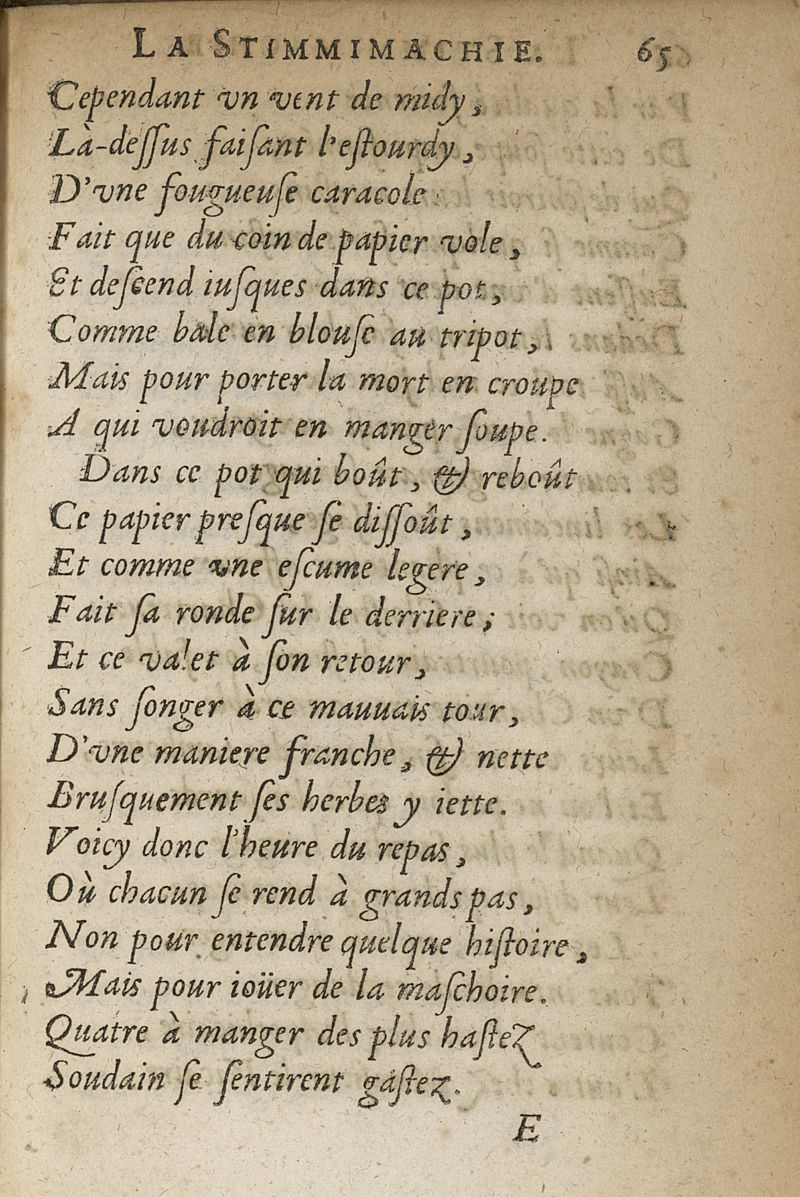 LA STIMMIMACHIE. 65
Cependant vn vent de midy,
Là-deſſus faiſant l'eſtourdy,
D'vne fougueuſe caracole
Fait que du coin de papier vole,
Et deſcend iuſques dans ce pot,
Comme bale en blouſe au tripot,
Mais pour porter la mort en croupe
A qui voudroit en manger ſoupe.
Dans ce pot qui boût, & reboût
Ce papier preſque ſe diſſoût,
Et comme vne eſcume legere,
Fait ſa ronde ſur le derriere;
Et ce valet à ſon retour,
Sans ſonger à ce mauuais tour,
D'vne maniere franche, & nette
Bruſquement ſes herbes y iette.
Voicy donc l'heure du repas,
Où chacun ſe rend à grands pas,
Non pour entendre quelque hiſtoire,
Mais pour ioüer de la maſchoire.
Quatre à manger des plus haſtez
Soudain ſe ſentirent gâſtez.
E